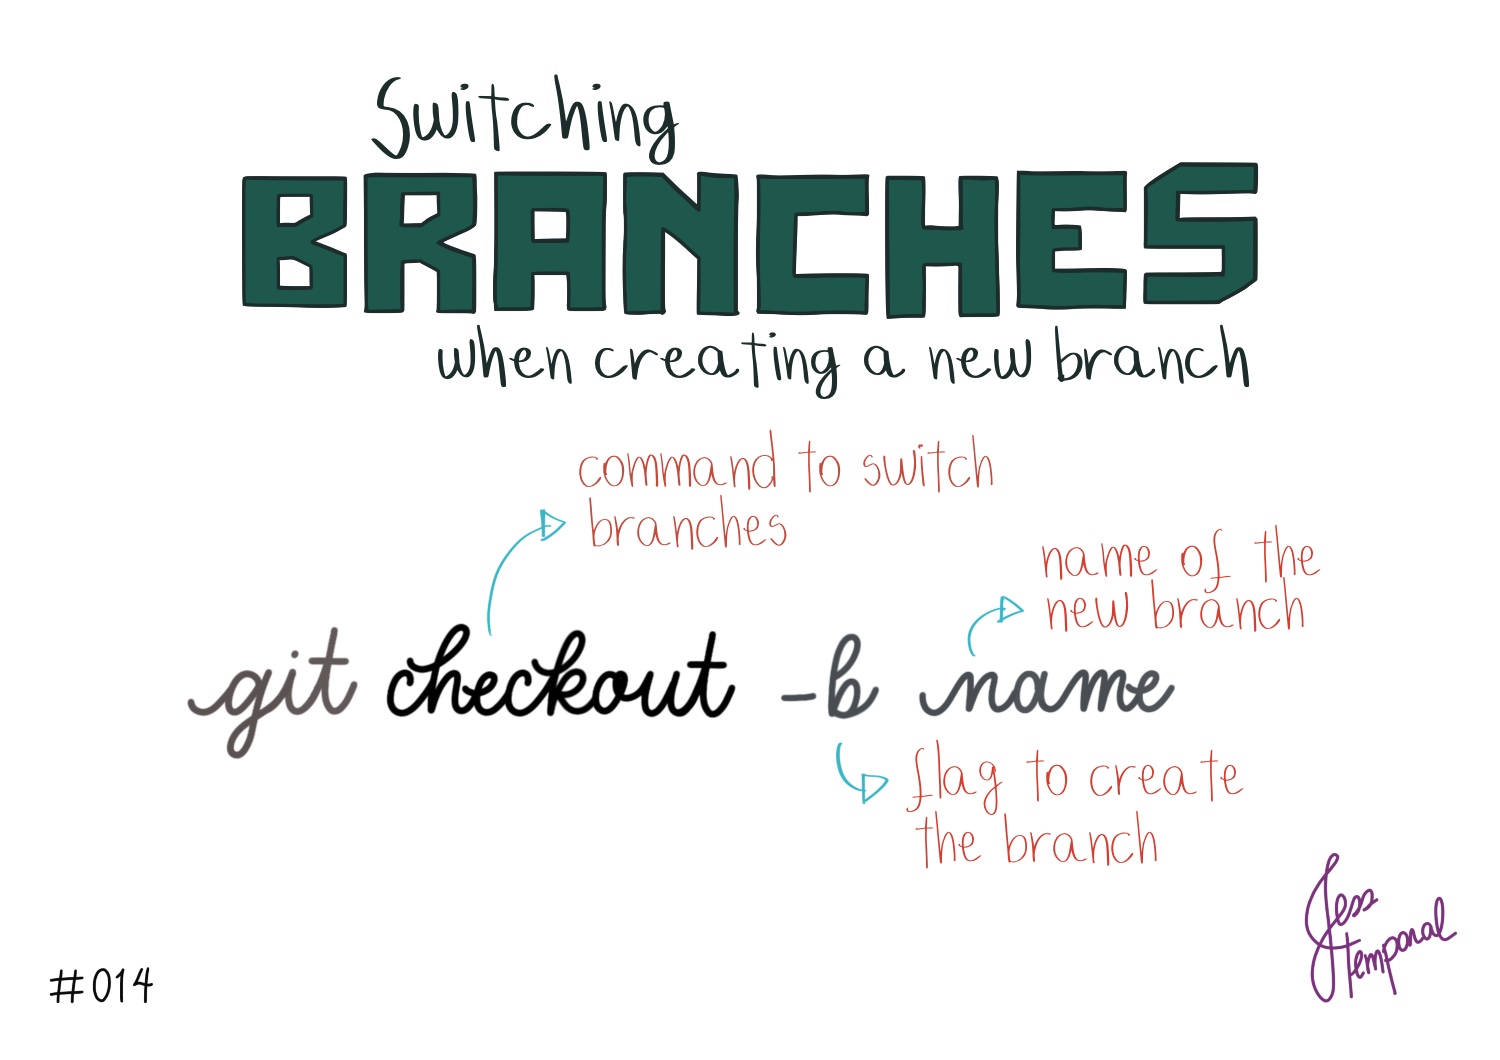 Switching
BRANCHES
when creating a new branch
command to switch
branches
name of the
new branch
git checkout -b name
flag to create
the branch
Jess
temporal
#014